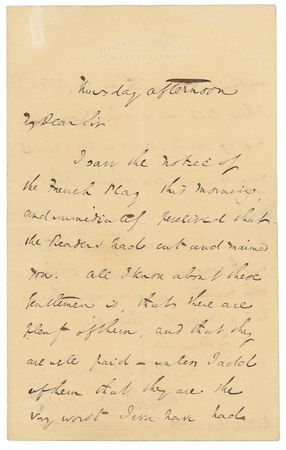 Thursday afternoon
My Dear Sir
I saw the notice of
the French Play this morning
and immediately perceived that
the Readers had cut and maimed
you. All I know about these
gentlemen is, that there are
plenty of them, and that they
are well paid – unless I add
of them that they are the
very worst I ever have had